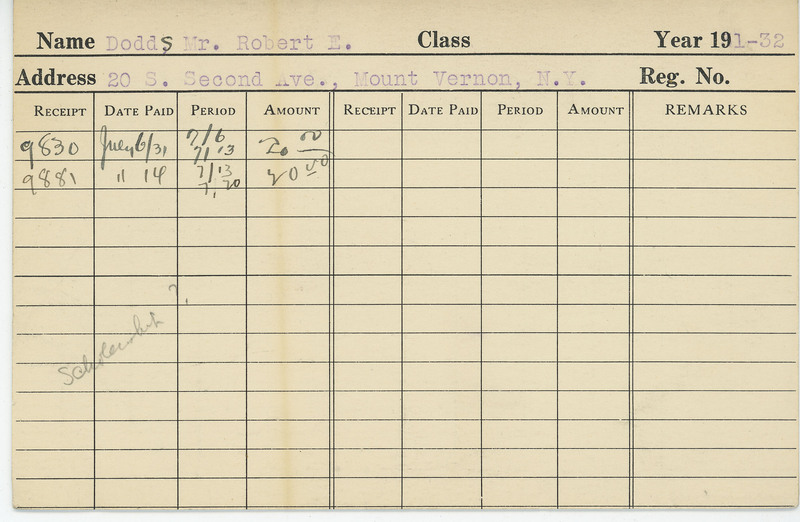 Name Dodds Mr. Robert E. Class Year 191-32
Address 20 S. Second Ave., Mount Vernon, N.Y. Reg. No.
RECEIPT DATE PAID PERIOD AMOUNT RECEIPT DATE PAID PERIOD AMOUNT REMARKS
9830 July 6/31 7/6 20 00
7/13
9881 " 14 7/13 20 00
7/20
Scholarship ?